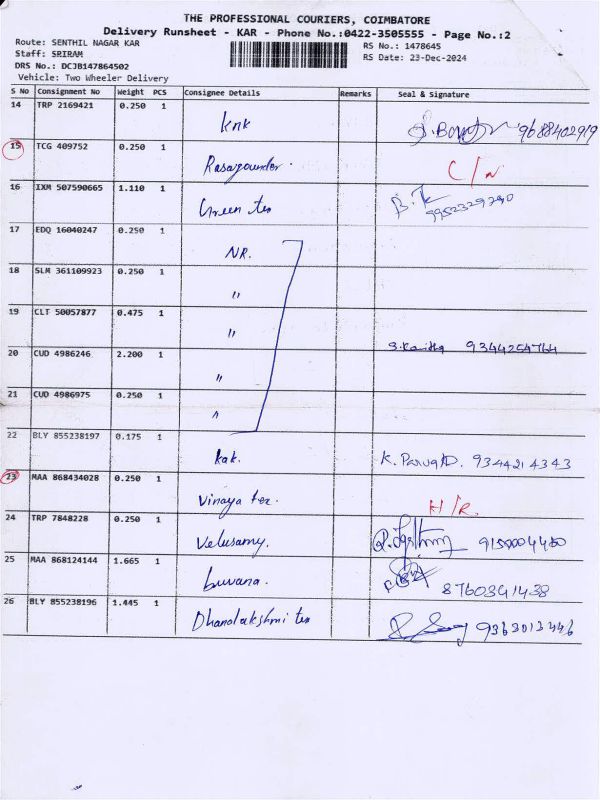 THE PROFESSIONAL COURIERS, COIMBATORE
Delivery Runsheet - KAR - Phone No.:0422-3505555 - Page No.:2
Route: SENTHIL NAGAR KAR
Staff: SRIRAM
DRS No.: DCJB147864502
Vehicle: Two Wheeler Delivery
RS No.: 1478645
RS Date: 23-Dec-2024
S No Consignment No Weight PCS Consignee Details Remarks Seal & Signature
14 TRP 2169421 0.250 1 knk 9688402919
15 TCG 409752 0.250 1 Rasagounder. C/N
16 IXM 507590665 1.110 1 Green tex B.
17 EDQ 16040247 0.250 1 NR.
18 SLM 361109923 0.250 1 "
19 CLT 50057877 0.475 1 "
20 CUD 4986246 2.200 1 " 9344254764
21 CUD 4986975 0.250 1 "
22 BLY 855238197 0.175 1 kak. K. 9344214343
23 MAA 868434028 0.250 1 Vinaya tex. H/R.
24 TRP 7848228 0.250 1 Velusamy.
25 MAA 868124144 1.665 1 buvana. 8760341438
26 BLY 855238196 1.445 1 Dhanalakshmi tex 9363013446